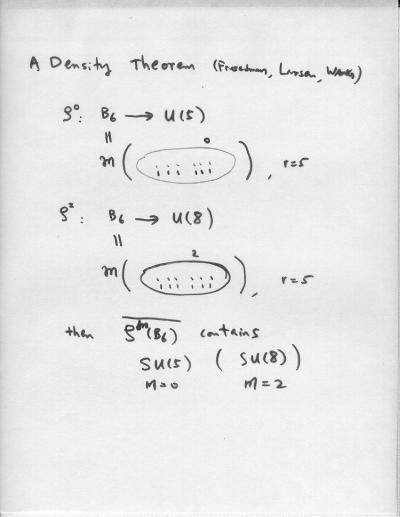 A Density Theorem (Freedman, Larsen, Wang)
ρ⁰: B₆ → U(5)
||
0
m ( ) , r=5
ρ²: B₆ → U(8)
||
2
m ( ) , r=5
then ρᵐ(B₆) contains
SU(5) ( SU(8) )
M=0 M=2